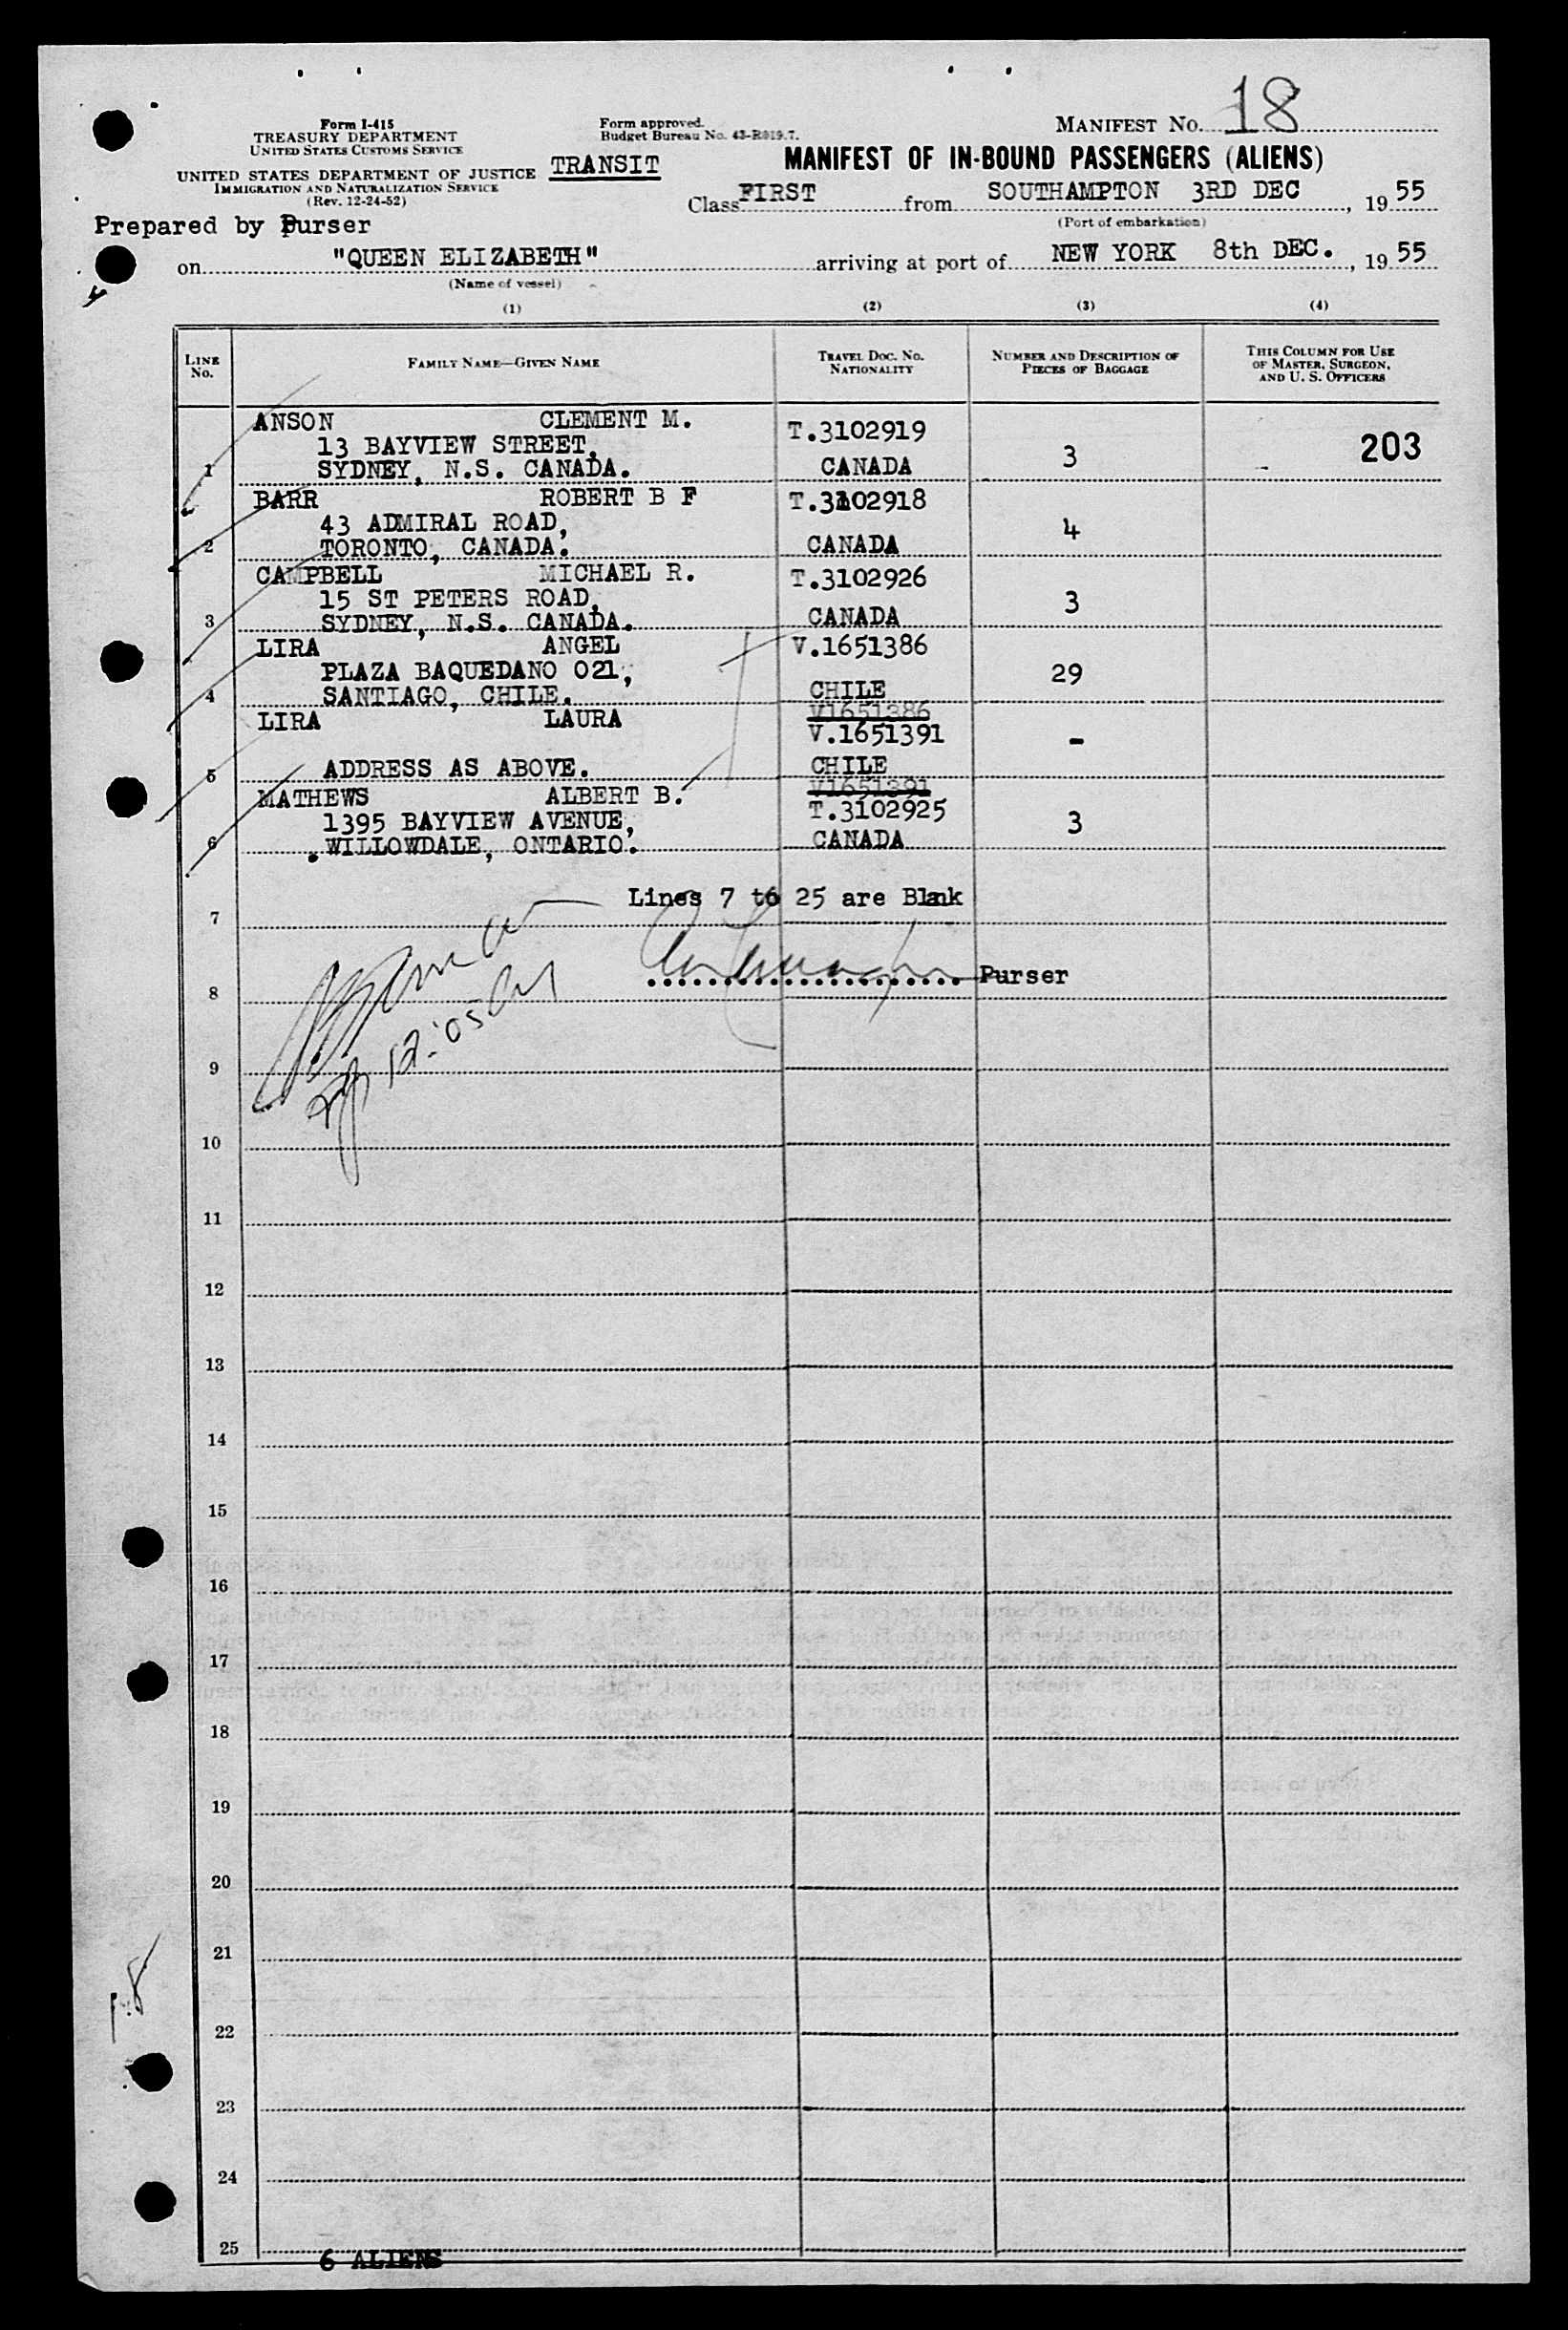 Form I-415
TREASURY DEPARTMENT
UNITED STATES CUSTOMS SERVICE
UNITED STATES DEPARTMENT OF JUSTICE
IMMIGRATION AND NATURALIZATION SERVICE
(Rev. 12-24-52)
Form approved.
Budget Bureau No. 43-R019.7.
TRANSIT
MANIFEST NO. 18
MANIFEST OF IN-BOUND PASSENGERS (ALIENS)
Class FIRST from SOUTHAMPTON 3RD DEC, 19 55
(Port of embarkation)
Prepared by Purser
on "QUEEN ELIZABETH" arriving at port of NEW YORK 8th DEC., 19 55
(Name of vessel)
(1) (2) (3) (4)
LINE NO.
FAMILY NAME—GIVEN NAME
TRAVEL DOC. NO. NATIONALITY
NUMBER AND DESCRIPTION OF PIECES OF BAGGAGE
THIS COLUMN FOR USE OF MASTER, SURGEON, AND U. S. OFFICERS
ANSON CLEMENT M. T.3102919
13 BAYVIEW STREET, 3 203
1 SYDNEY, N.S. CANADA. CANADA
BARR ROBERT B F T.3102918
43 ADMIRAL ROAD, 4
2 TORONTO, CANADA. CANADA
CAMPBELL MICHAEL R. T.3102926
15 ST PETERS ROAD, 3
3 SYDNEY, N.S. CANADA. CANADA
LIRA ANGEL V.1651386
PLAZA BAQUEDANO 021, 29
4 SANTIAGO, CHILE. CHILE
V1651386
LIRA LAURA V.1651391 -
5 ADDRESS AS ABOVE. CHILE
V1651391
MATHEWS ALBERT B. T.3102925
1395 BAYVIEW AVENUE, 3
6 WILLOWDALE, ONTARIO. CANADA
Lines 7 to 25 are Blank
7
Purser
8
12:05
9
10
11
12
13
14
15
16
17
18
19
20
21
22
23
24
25
6 ALIENS